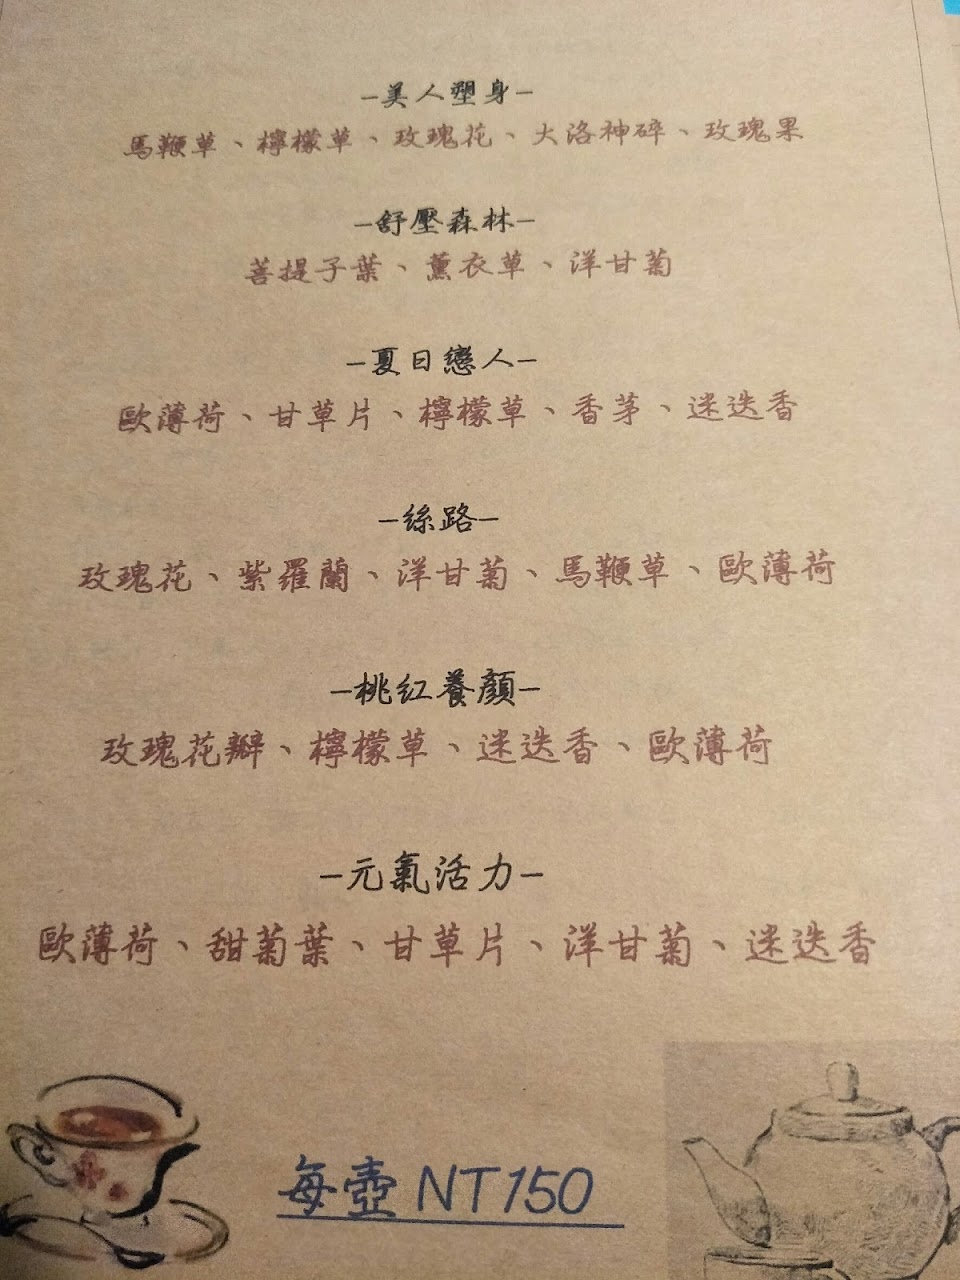 –美人塑身–
馬鞭草、檸檬草、玫瑰花、大洛神碎、玫瑰果
–舒壓森林–
菩提子葉、薰衣草、洋甘菊
–夏日戀人–
歐薄荷、甘草片、檸檬草、香茅、迷迭香
–絲路–
玫瑰花、紫羅蘭、洋甘菊、馬鞭草、歐薄荷
–桃紅養顏–
玫瑰花瓣、檸檬草、迷迭香、歐薄荷
–元氣活力–
歐薄荷、甜菊葉、甘草片、洋甘菊、迷迭香
每壺 NT150